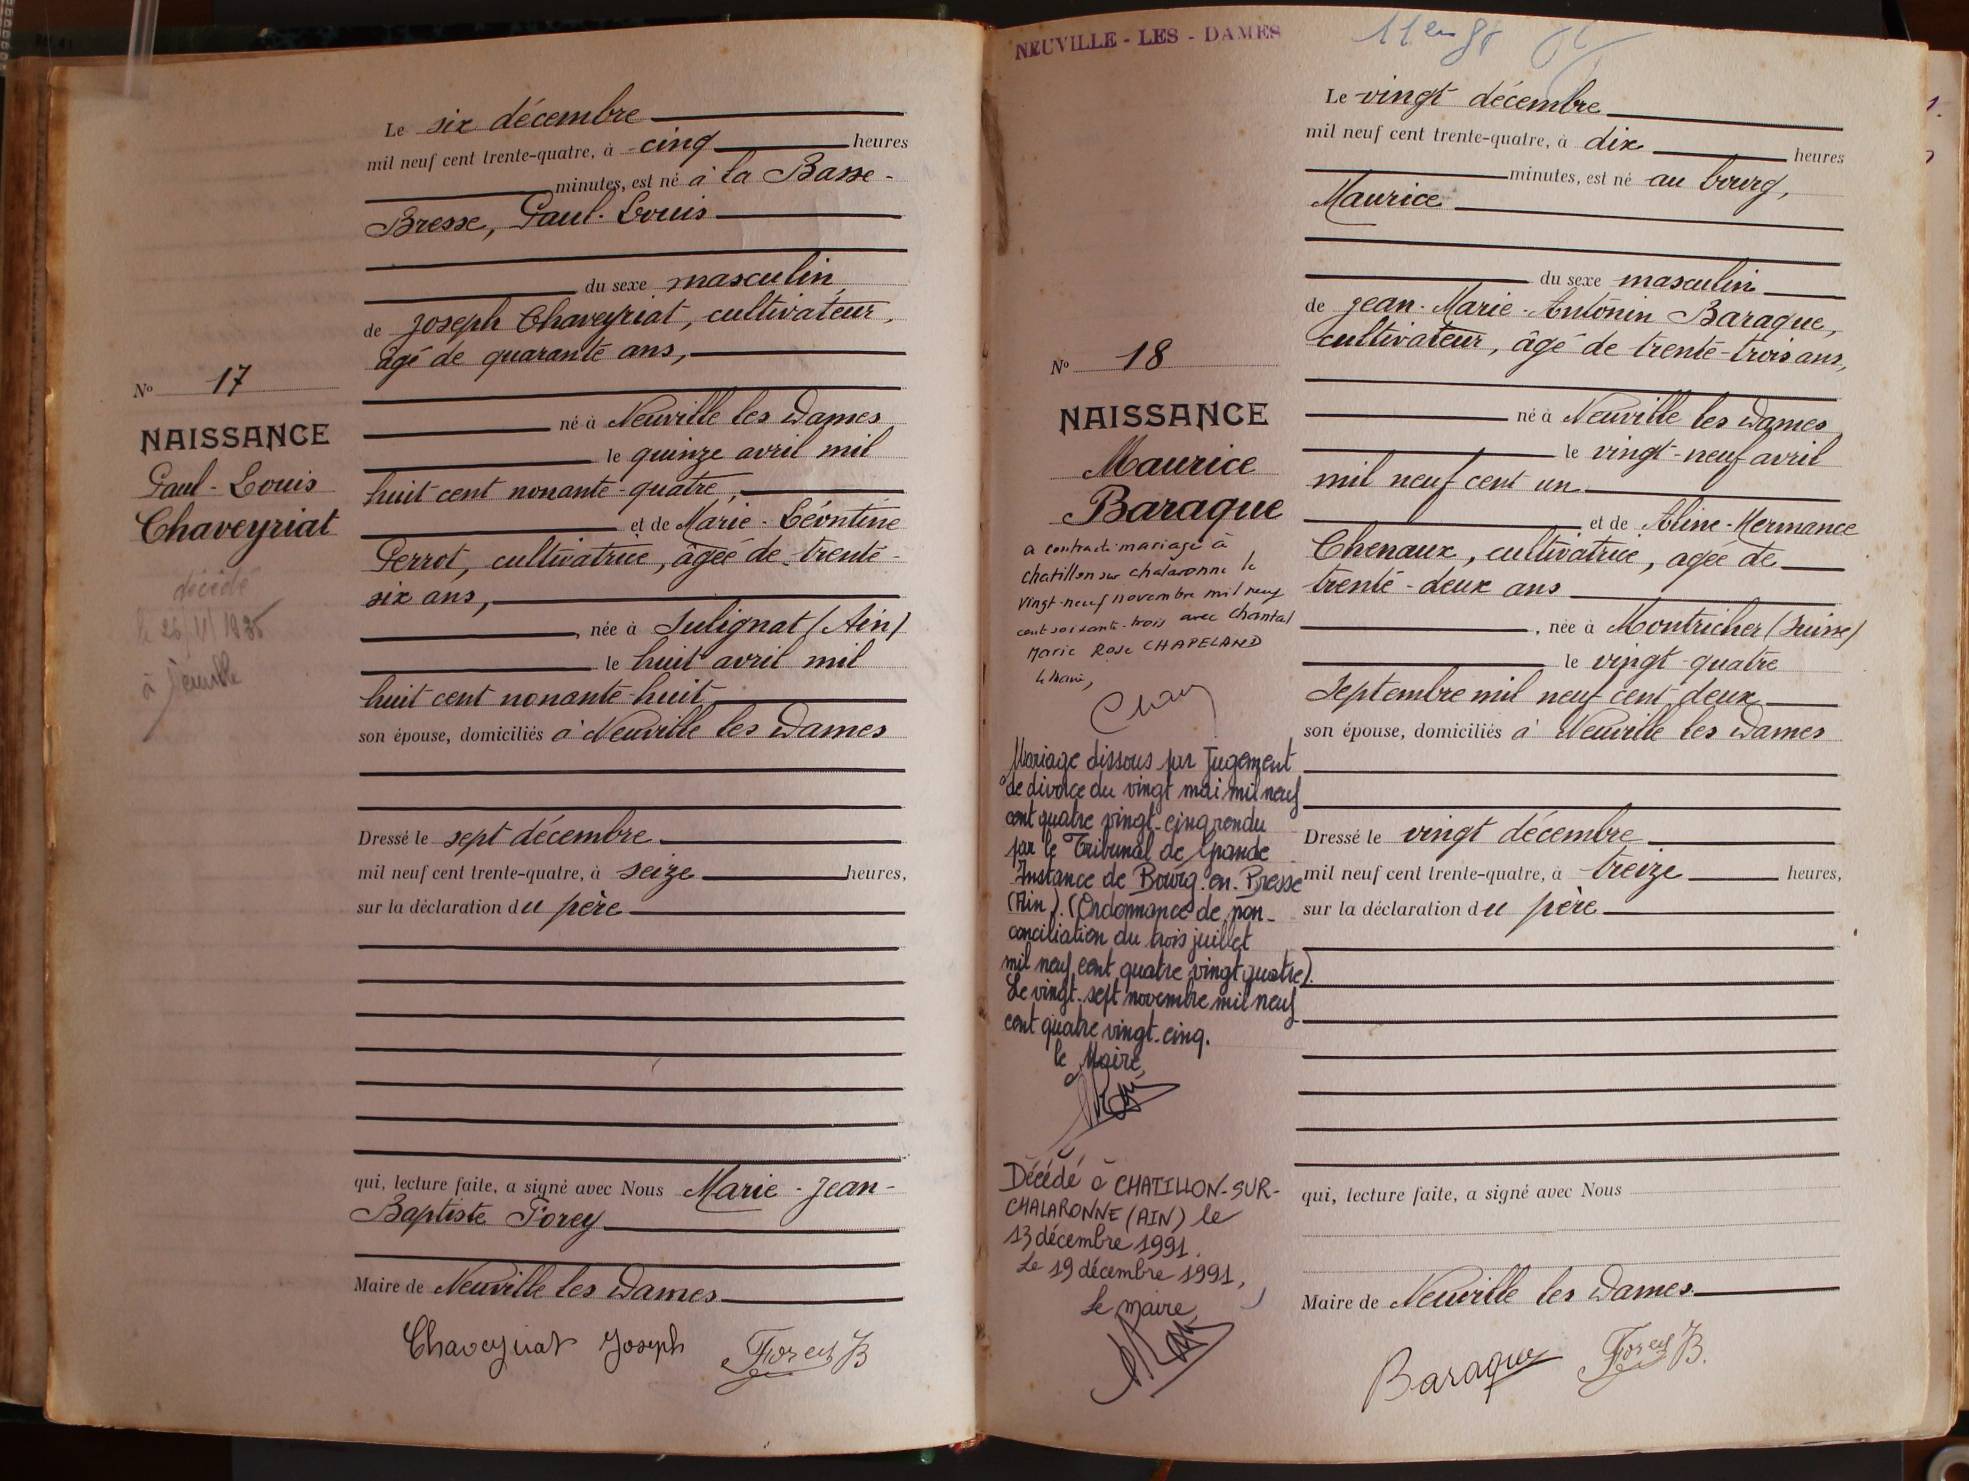 Le six décembre
mil neuf cent trente-quatre, à cinq heures
minutes, est né à la Basse-
Bresse, Paul-Louis
du sexe masculin,
de Joseph Chaveyriat, cultivateur,
âgé de quarante ans,
né à Neuville les Dames
le quinze avril mil
huit cent nonante-quatre,
et de Marie-Léontine
Perrot, cultivatrice, âgée de trente-
six ans,
, née à Sulignat (Ain)
le huit avril mil
huit cent nonante-huit
son épouse, domiciliés à Neuville les Dames
Dressé le sept décembre
mil neuf cent trente-quatre, à seize heures,
sur la déclaration du père
qui, lecture faite, a signé avec Nous Marie-Jean-
Baptiste Forey
Maire de Neuville les Dames
Chaveyriat Joseph Forey B
No 17
NAISSANCE
Paul-Louis
Chaveyriat
décédé
le 26/11/1935
à Neuville
NEUVILLE-LES-DAMES
No 18
NAISSANCE
Maurice
Baraque
a contracté mariage à
Chatillon sur Chalaronne le
vingt-neuf novembre mil neuf
cent soixante-trois avec Chantal
Marie Rose CHAPELAND
le Maire,
Mariage dissous par Jugement
de divorce du vingt mai mil neuf
cent quatre vingt-cinq rendu
par le Tribunal de Grande
Instance de Bourg-en-Bresse
(Ain). (Ordonnance de non-
conciliation du trois juillet
mil neuf cent quatre vingt quatre).
Le vingt-sept novembre mil neuf
cent quatre vingt-cinq.
le Maire,
Décédé à CHATILLON-SUR-
CHALARONNE (AIN) le
13 décembre 1991.
Le 19 décembre 1991,
Le maire
Le vingt décembre
mil neuf cent trente-quatre, à dix heures
minutes, est né au bourg,
Maurice
du sexe masculin
de Jean-Marie-Antonin Baraque,
cultivateur, âgé de trente-trois ans,
né à Neuville les Dames
le vingt-neuf avril
mil neuf cent un
et de Aline-Hermance
Chenaux, cultivatrice, agée de
trente-deux ans
, née à Montricher (Suisse)
le vingt-quatre
Septembre mil neuf cent deux
son épouse, domiciliés à Neuville les Dames
Dressé le vingt décembre
mil neuf cent trente-quatre, à treize heures,
sur la déclaration du père
qui, lecture faite, a signé avec Nous
Maire de Neuville les Dames
Baraque Forey B.